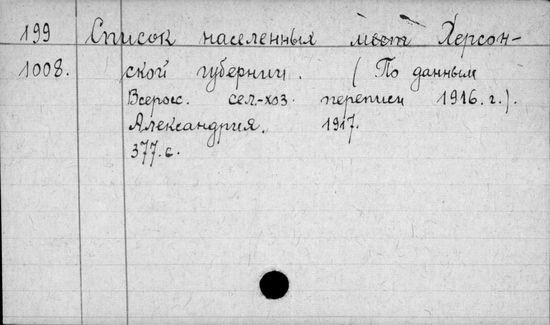 199 Список населенных мест Херсон-
1008. ской губернии. (По данным
Всеросс. сел-хоз. переписи 1916.г.).
Александрия. 1917.
377.с.